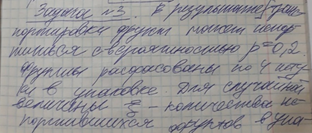 Задача №3. В результате транс
портировки фрукт может испор
титься с вероятностью p=0,2
Фрукты расфасованы по 4 шту
ки в упаковке. Для случайной
величины ξ - количества не
портившихся фруктов в упа